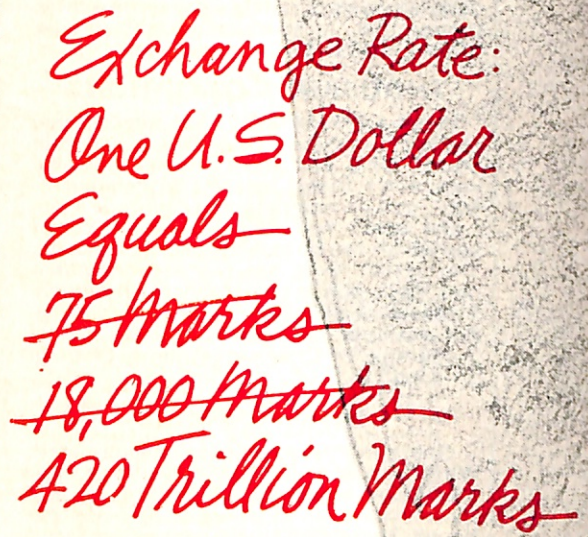 Exchange Rate:
One U.S. Dollar
Equals
75 Marks
18,000 Marks
420 Trillion Marks